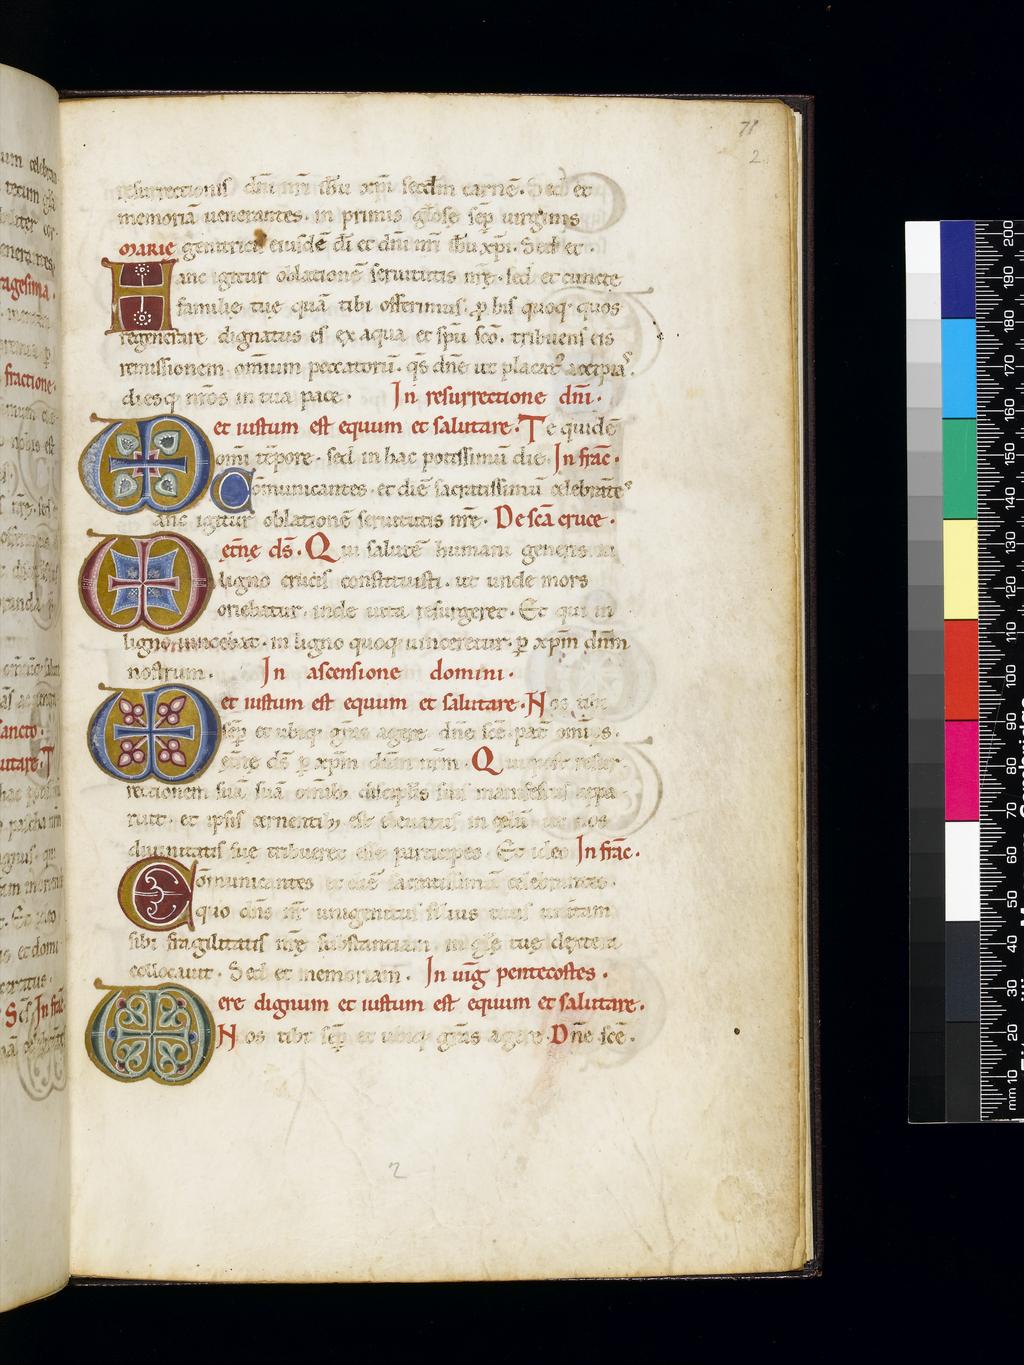 71
2
resurrectionis dñi nr̃i ih̃u xp̃i secđm carnẽ. Sed et
memoriã uenerantes. in primis glõse sep̃ uirginis
MARIE genitricis eiusdẽ dĩ et dñi nr̃i ih̃u xp̃i. Sed et.
Hanc igitur oblationẽ seruitutis nr̃ę. sed et cuncte
familie tue quã tibi offerimus. ꝓ his quoq; quos
regenerare dignatus es ex aqua et sp̃u sc̃o. tribuens eis
remissionem omnium peccatorũ. q̃s dñe ut placatꝰ accipiaſ.
diesq; nr̃os in tua pace. In resurrectione dñi.
et iustum est equum et salutare. Te quidẽ
omi tẽpore. sed in hac potissimũ die. In frac̃.
Cõmunicantes. et diẽ sacratissimũ celebrãteſ
anc igitur oblationẽ seruitutis nr̃e. De sc̃a cruce.
et̃ne ds̃. Qui salutẽ humani generis in
ligno crucis constituisti. ut unde mors
oriebatur. inde uita resurgeret. Et qui in
ligno uincebat. in ligno quoq; uinceretur. ꝑ xp̃m dñm
nostrum. In ascensione domini.
et iustum est equum et salutare. Nos tibi
sep̃ et ubiq; gr̃as agere. dñe sc̃e. pat̃ omp̃s.
et̃ne ds̃ ꝑ xp̃m dñm nr̃m. Qui post resur
rectionem suã suã omib; discipl̃is suis manifestus appa
ruit. et ipsis cernentib; est eleuatus in celũ ut nos
diuinitatis sue tribueret esse participes. Et ideo In frac̃.
Cõmunicantes et diẽ sacratissimũ celebrantes.
quo dñs nr̃ unigenitus filius tuus unitam
sibi fragilitatis nr̃ę substantiam. in gl̃ę tuę dextera
collocauit. Sed et memoriam. In uig̃ pentecostes.
ere dignum et iustum est equum et salutare.
Nos tibi sep̃ et ubiq; gr̃as agere. Dñe sc̃e.
2
200
190
180
170
160
150
140
130
120
110
100
90
80
70
60
50
40
30
20
mm 10